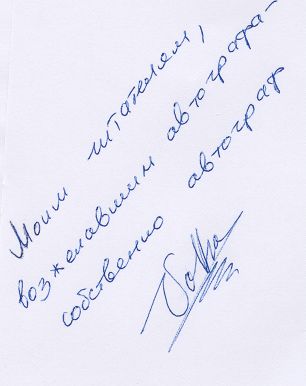 Моим читателям,
возжелавшим автографа-
собственно автограф